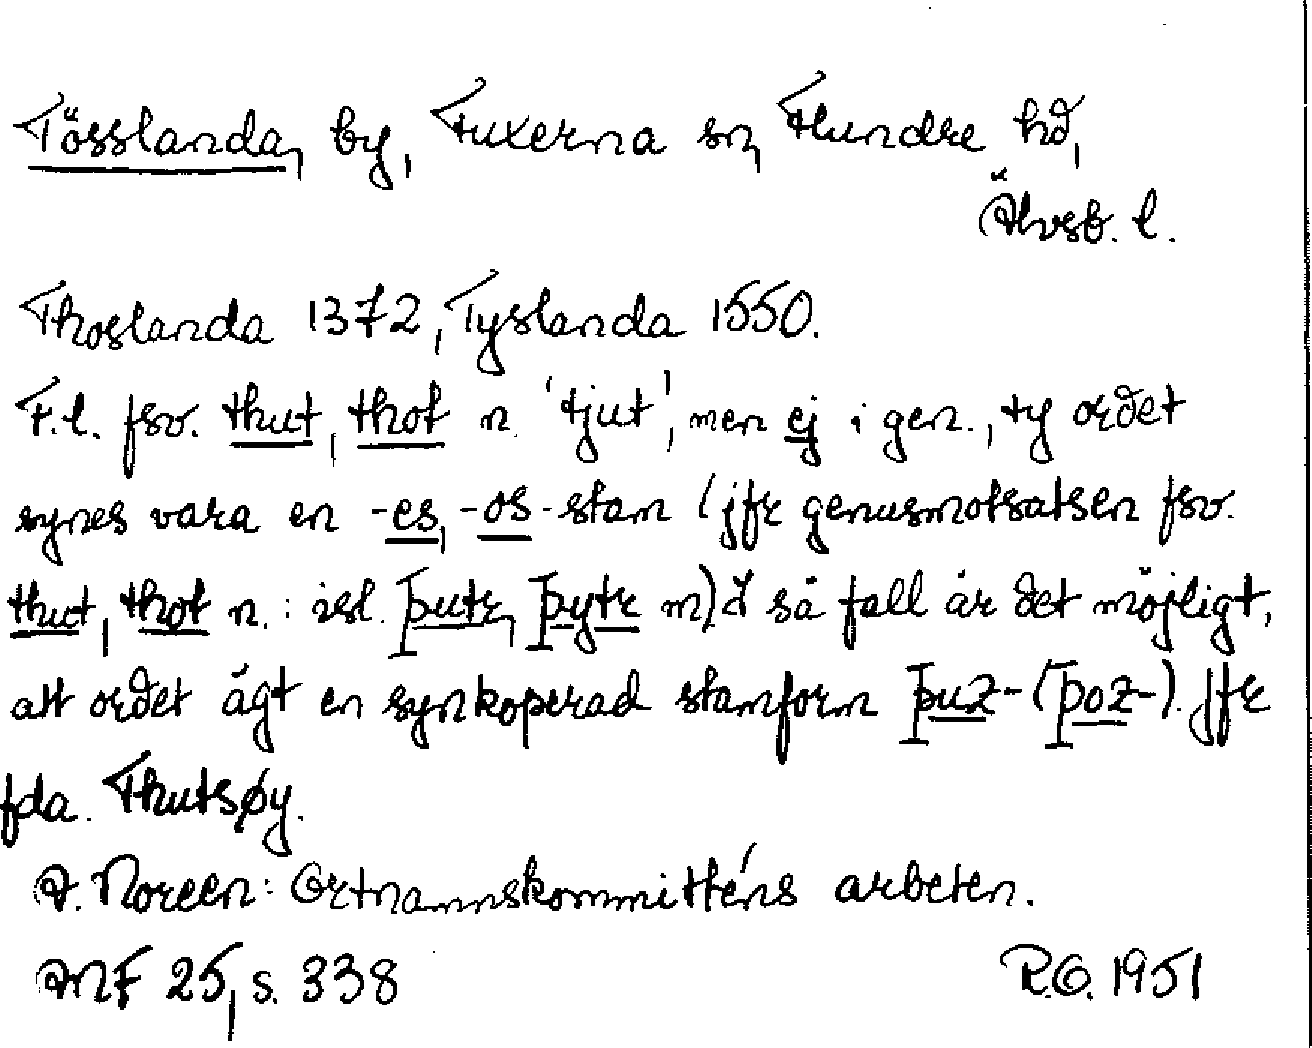 Tösslanda, by, Fuxerna sn, Flundre hd,
Älvsb. l.
Thoslanda 1372, Tyslanda 1550.
F.l. fsv. thut, thot n. 'tjut', men ej i gen., ty ordet
synes vara en -es, -os-stam (jfr genusmotsatsen fsv.
thut, thot n. : isl. þutr, þytr m) I så fall är det möjligt,
att ordet ägt en synkoperad stamform þuz- (þoz-). Jfr
fda. Thutsøy.
A. Noreen: Ortnamnskommitténs arbeten.
ANF 25, s. 338 R.O. 1951